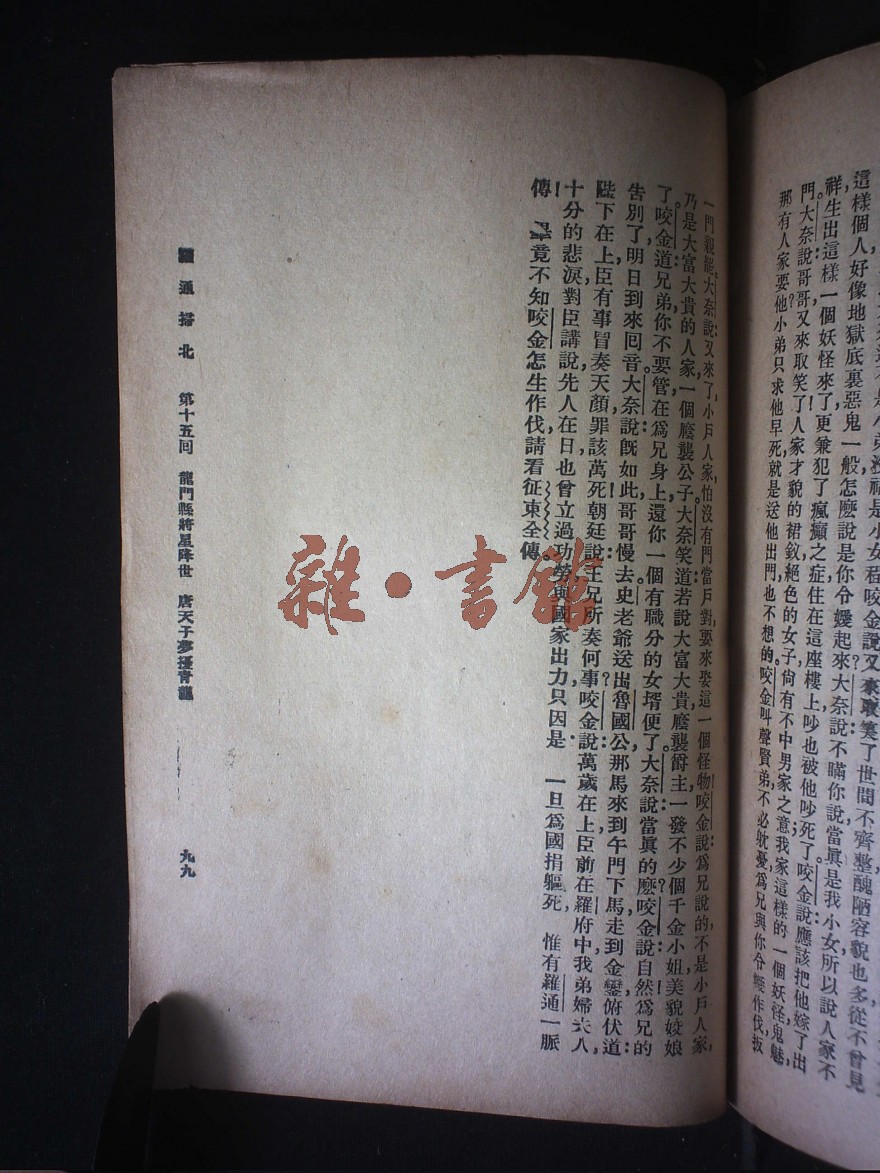 這樣個人好像地獄底裏惡鬼一般怎麽說是你令嬡起來大奈說不瞞你說當眞是我小女所以說人家不
祥生出這樣一個妖怪來了更兼犯了瘋癲之症住在這座樓上吵也被他吵死了;咬金說:應該把他嫁了出
門。大奈說哥哥又來取笑了!人家才貌的裙釵絕色的女子尙有不中男家之意我家這樣的一個妖怪鬼魅,
那有人家要他?小弟只求他早死就是送他出門也不想的咬金叫聲賢弟不必躭憂爲兄與你令嬡作伐扳
一門親罷。大奈說:又來了,小戶人家,怕沒有門當戶對,要來娶這一個怪物!咬金說:爲兄說的,不是小戶人家,
乃是大富大貴的人家,一個廕襲公子。大奈笑道:若說大富大貴廕襲爵主,一發不少個千金小姐美貌姣娘
了。咬金道:兄弟,你不要管,在爲兄身上還你一個有職分的女壻便了。大奈說:當眞的麽?咬金說:自然!爲兄的
告別了,明日到來回音。大奈說:旣如此,哥哥慢去。史老爺送出魯國公,那馬來到午門下馬,走到金鑾俯伏道:
陛下在上,臣有事冒奏天顏,罪該萬死!朝廷說:王兄所奏何事?咬金說:萬歲在上,臣前在羅府中,我弟婦夫人,
十分的悲淚,對臣講說,先人在日,也曾立過功勞,與國家出力,只因是 一旦爲國捐軀死, 惟有羅通一脈
傳!畢竟不知咬金怎生作伐,請看征東全傳。
通掃北 第十五回 龍門縣將星降世 唐天子夢擾青龍
九九
雜·書館